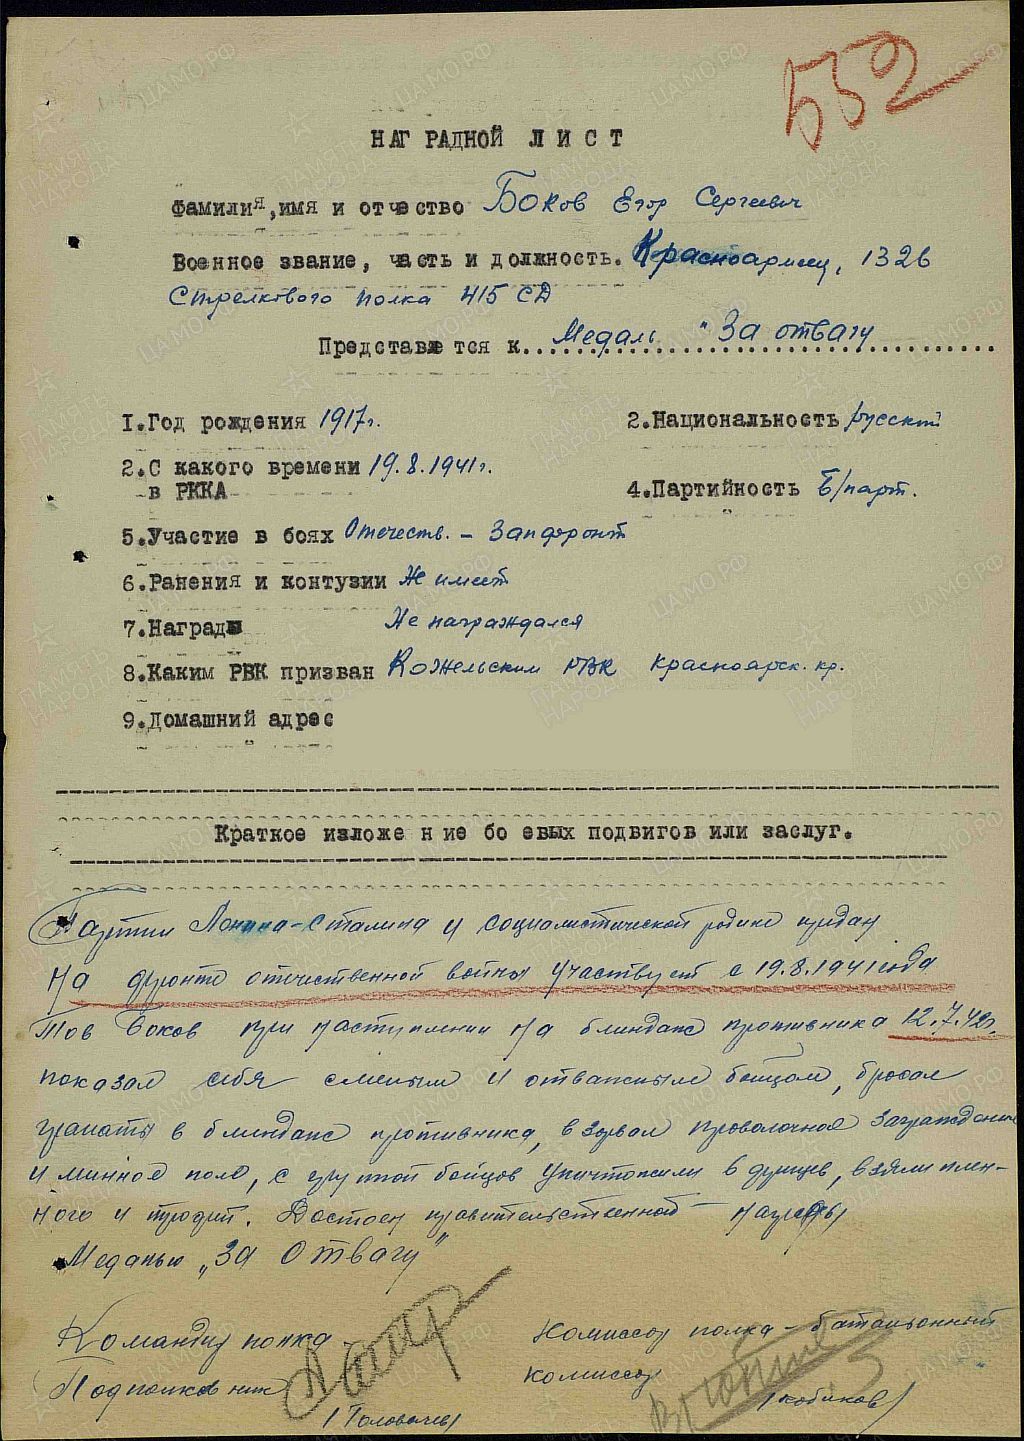 552
НАГРАДНОЙ ЛИСТ
Фамилия, имя и отчество Боков Егор Сергеевич
Военное звание, часть и должность. Красноармеец, 1326
стрелкового полка 415 СД
Представляется к... Медаль "За отвагу
1. Год рождения 1917г.
2. Национальность русский
2. С какого времени 19.8.1941г.
в РККА
4. Партийность Б/парт.
5. Участие в боях Отечеств. - Запфронт
6. Ранения и контузии Не имеет
7. Награды Не награждался
8. Каким РВК призван РВК Красноярск. кр.
9. Домашний адрес
Краткое изложение боевых подвигов или заслуг.
Партии Ленина-Сталина и социалистической родине предан
На фронте отечественной войны участвует с 19.8.1941 года
Тов Боков при наступлении на блиндаж противника 12.7.42г.
показал себя смелым и отважным бойцом, бросал
гранаты в блиндаж противника, взорвал проволочное заграждение
и минное поле, с группой бойцов уничтожили 6 фрицев, взяли плен-
ного и трофеи. Достоен правительственной награды
Медалью „За Отвагу"
Командир полка
Подполковник
/Головачев/
Комиссар полка - батальонный
комиссар
ЦАМО.РФ
ПАМЯТЬ НАРОДА